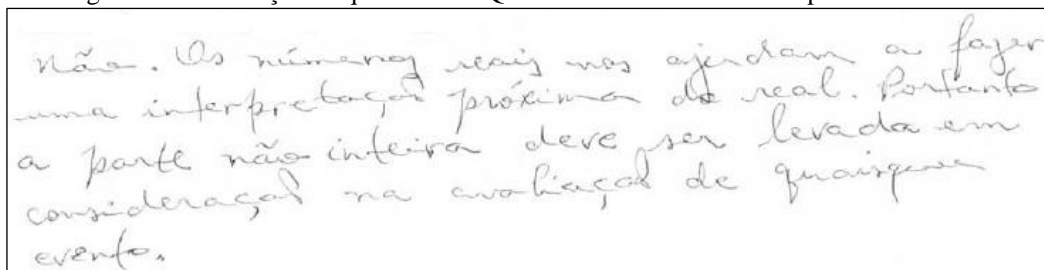 não. Os números reais nos ajudam a fazer
uma interpretação próxima do real. Portanto
a parte não inteira deve ser levada em
consideração na avaliação de quaisquer
evento.